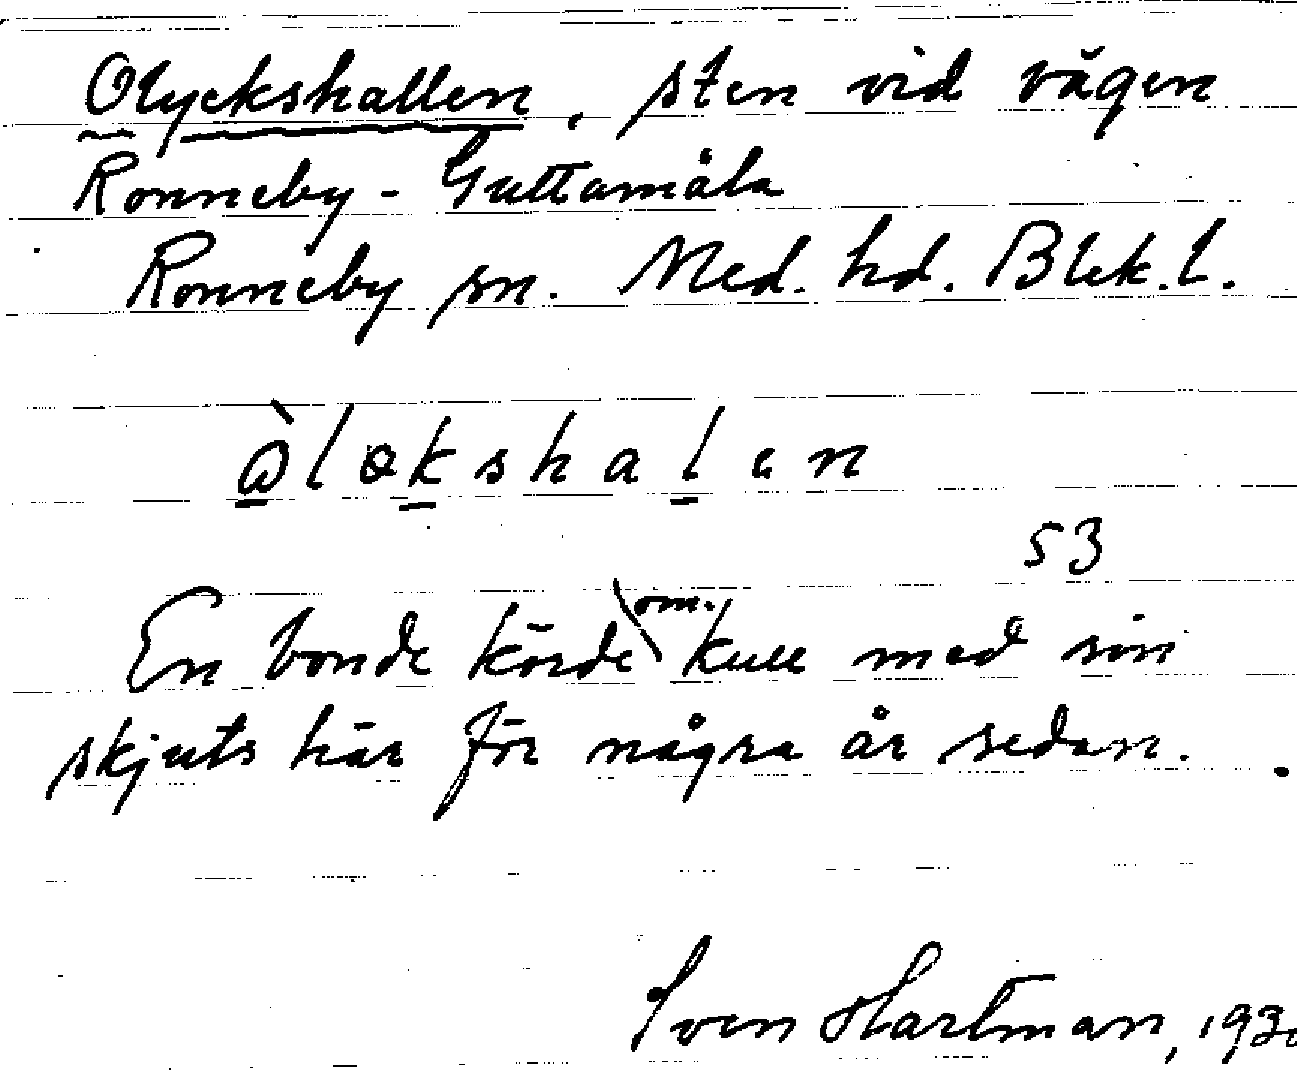 Olyckshallen, sten vid vägen
Ronneby - Guttamåla
Ronneby sn. Med. hd. Blek. l.
53
En bonde körde om. kull med sin
skjuts här för några år sedan.
Sven Hartman, 193